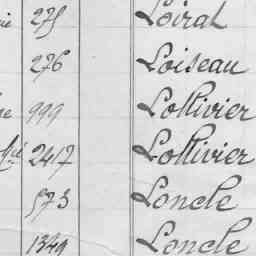 275 Loirat
276 Loiseau
999 Lollivier
2417 Lollivier
573 Loncle
1349 Loncle